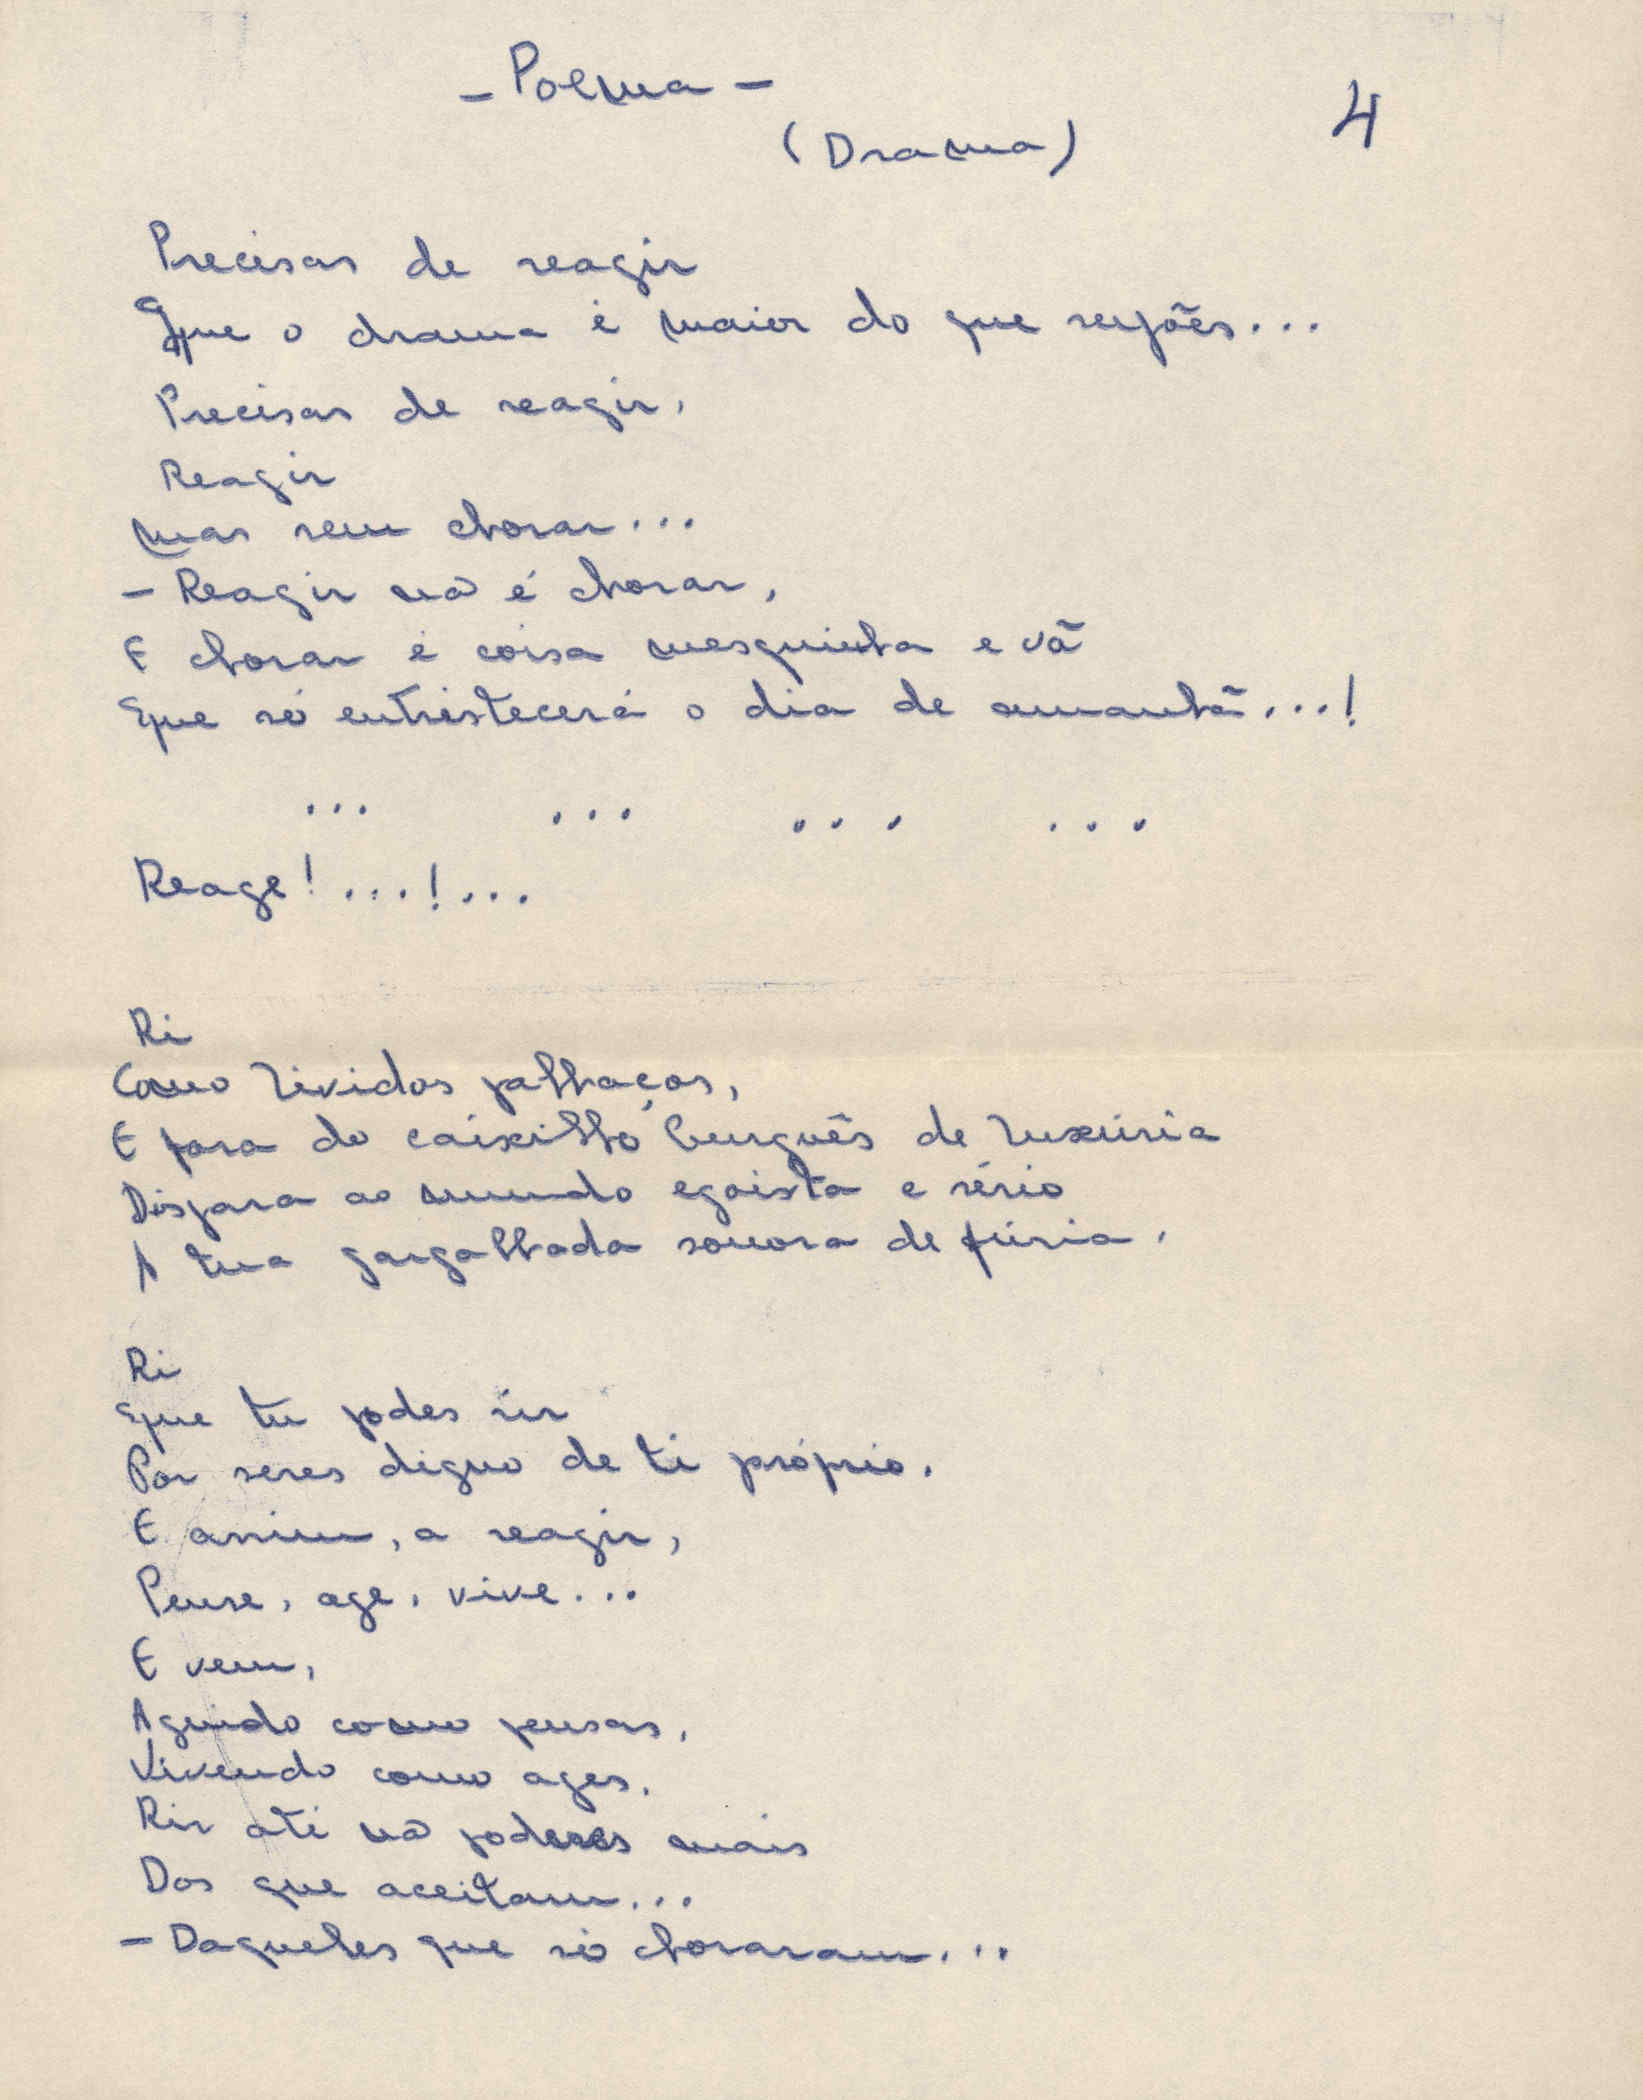 - Poema -
4
(Drama)
Precisas de reagir
Que o drama é maior do que supões...
Precisas de reagir,
Reagir
Mas sem chorar...
- Reagir não é chorar,
E chorar é coisa mesquinha e vã
Que só entristecerá o dia de amanhã...!
... ... ... ...
Reage!...!...
Ri
Como lívidos palhaços,
E para do caixilho burguês de luxúria
Dispara ao mundo egoista e sério
A tua gargalhada sonora de fúria.
Ri
Que tu podes rir
Por seres digno de ti próprio.
E assim, a reagir,
Pensa, age, vive...
E vem,
Agindo como pensas,
Vivendo como ages,
Rir até não poderes mais
Dos que aceitam...
- Daqueles que só choraram...